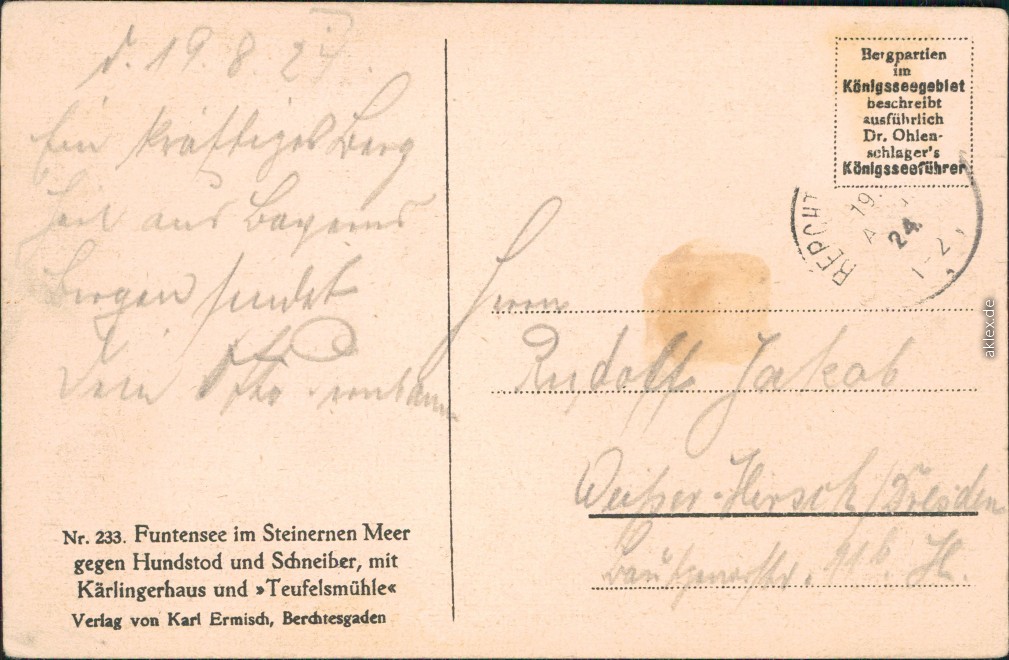 d. 19. 8. 24.
Ein kräftiges Berg
Heil aus Bayerns
Bergen sendet
Dein Otto
Nr. 233. Funtensee im Steinernen Meer
gegen Hundstod und Schneiber, mit
Kärlingerhaus und »Teufelsmühle«
Verlag von Karl Ermisch, Berchtesgaden
Bergpartien
im
Königsseegebiet
beschreibt
ausführlich
Dr. Ohlen-
schlager's
Königsseeführer
BERCHT
19.
24.
1-2
Herrn
Rudolf Jakob
Weißer-Hirsch/Dresden
aklex.de